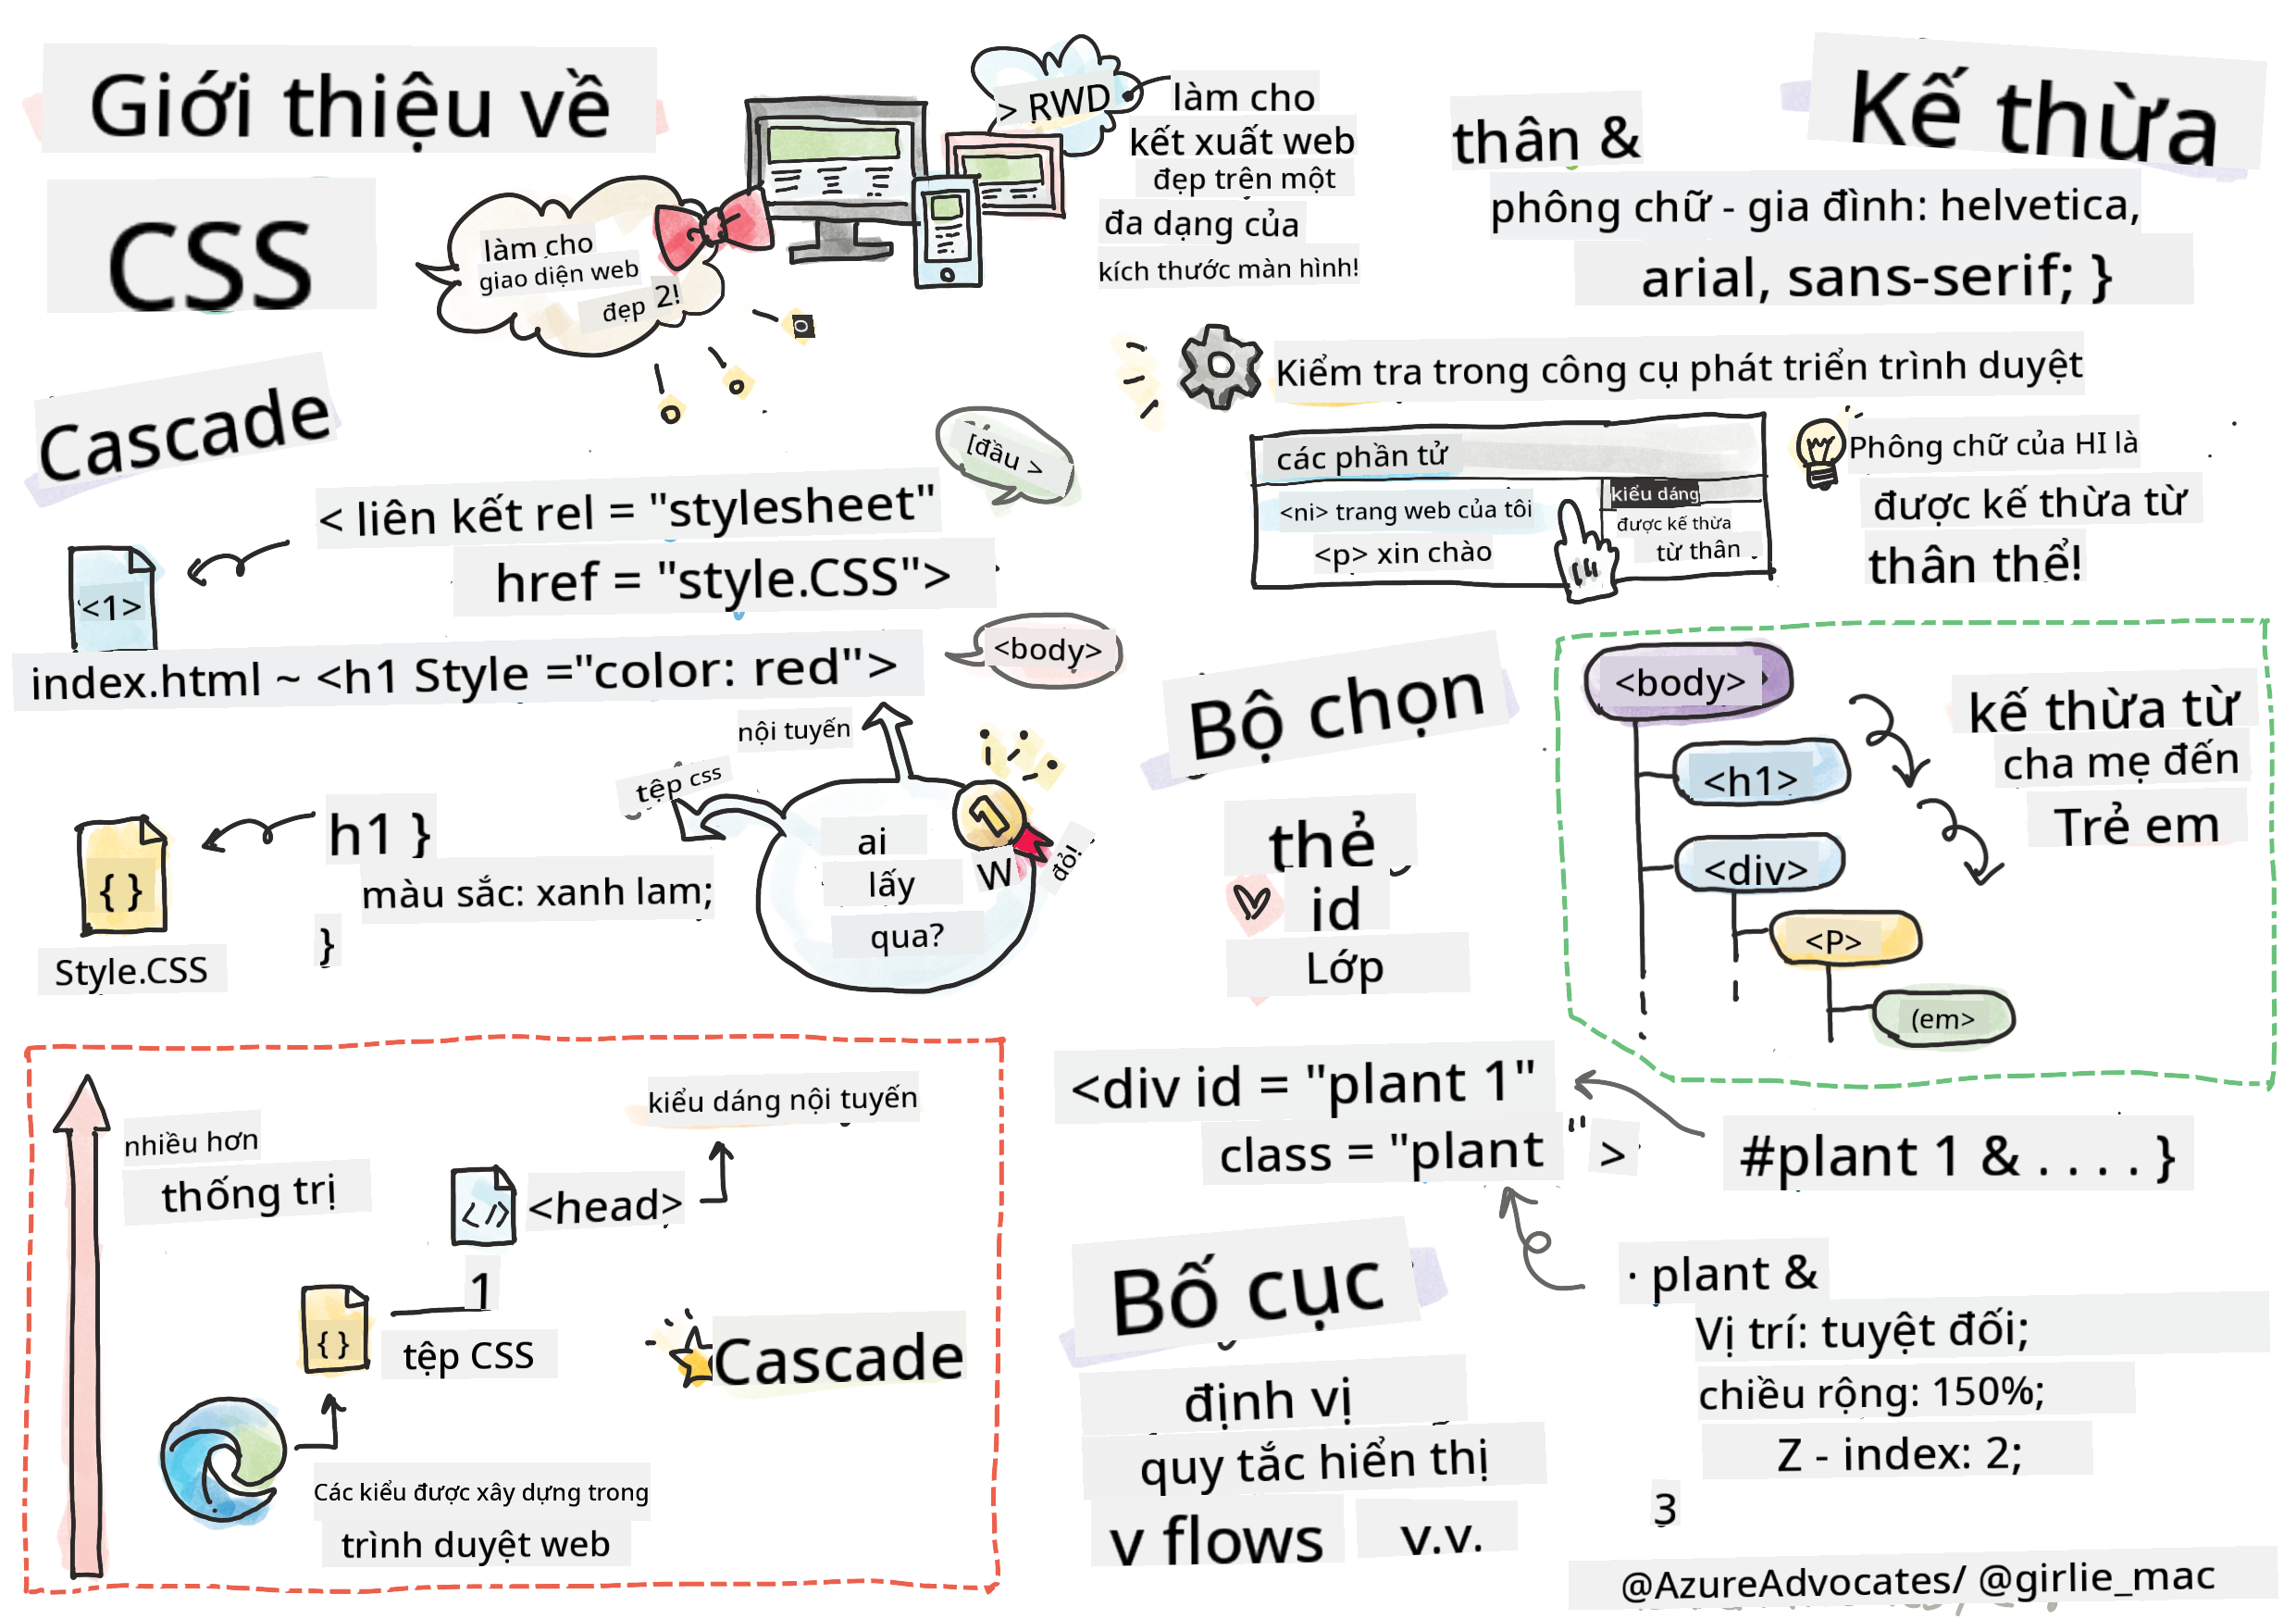 Giới thiệu về
CSS
làm cho
giao diện web
đẹp 2!
> RWD
làm cho
kết xuất web
đẹp trên một
đa dạng của
kích thước màn hình!
Cascade
[đầu >
< liên kết rel = "stylesheet"
href = "style.CSS">
<1>
index.html ~ <h1 Style ="color: red">
<body>
nội tuyến
tệp css
h1 }
màu sắc: xanh lam;
}
{ }
Style.CSS
ai
lấy
qua?
1
W
đỏ!
nhiều hơn
thống trị
kiểu dáng nội tuyến
</>
<head>
1
{ }
tệp CSS
Cascade
Các kiểu được xây dựng trong
trình duyệt web
Kế thừa
thân &
phông chữ - gia đình: helvetica,
arial, sans-serif; }
Kiểm tra trong công cụ phát triển trình duyệt
các phần tử
<ni> trang web của tôi
<p> xin chào
kiểu dáng
được kế thừa
từ thân
Phông chữ của HI là
được kế thừa từ
thân thể!
<body>
<h1>
<div>
<P>
(em>
kế thừa từ
cha mẹ đến
Trẻ em
Bộ chọn
thẻ
id
Lớp
<div id = "plant 1"
class = "plant ">
#plant 1 & . . . . }
· plant &
Vị trí: tuyệt đối;
chiều rộng: 150%;
Z - index: 2;
3
Bố cục
định vị
quy tắc hiển thị
v flows v.v.
@AzureAdvocates/ @girlie_mac